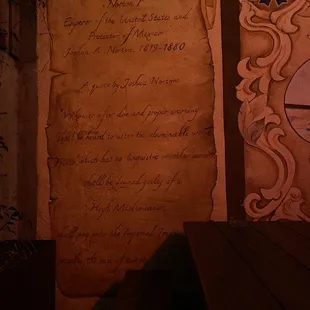 Norton I
Emperor of the United States and
Protector of Mexico
Joshua A. Norton, 1819-1880
A quote by Joshua Norton:
"Whoever after due and proper warning
shall be heard to utter the abominable word
which has no linguistic or other warrant
shall be guilty of a
High Misdemeanor
shall pay into the Imperial
the sum of